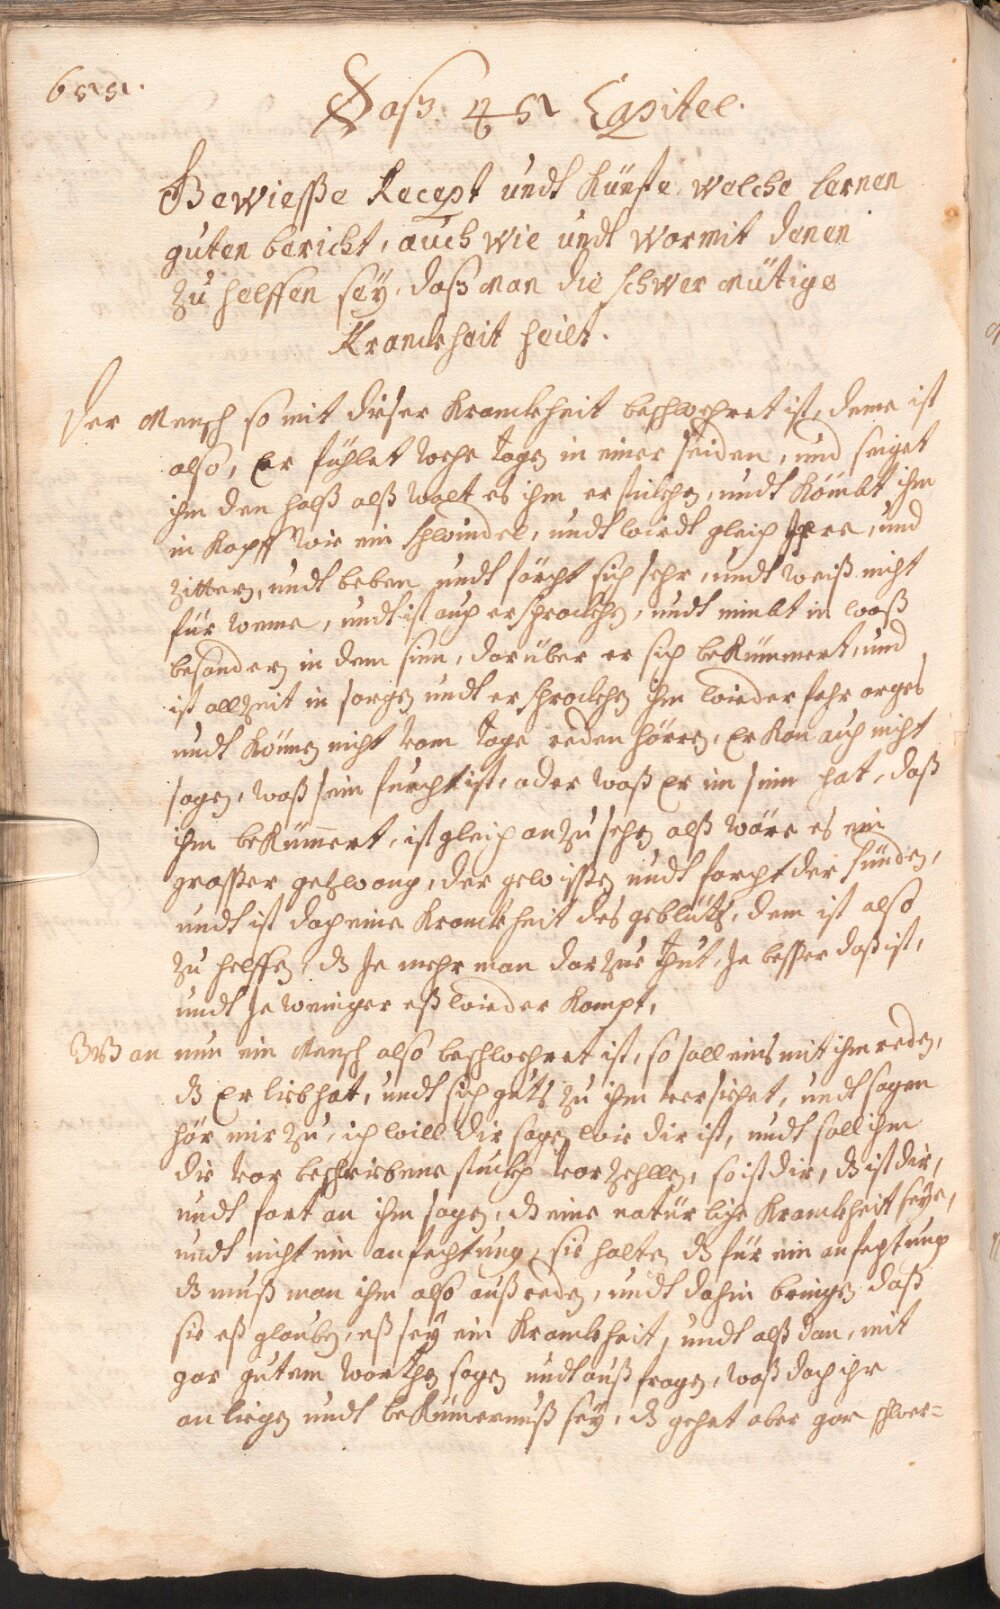 652.
Daß. 45 Capitel.
Gewiesse Recept undt Künste welche lernen
guten bericht, auch wie undt wormit denen
zu helffen sey, daß man die schwermütige
Kranckheit heilt.
Der Mensch so mit dieser Kranckheit beschwehret ist, deme ist
also, Er fühlet wehe tagen in einer seiden, und steiget
ihm den halß alß wolt es ihm ersticken, undt kömbt ihm
in Kopff wie ein schwindel, undt wirdt gleich Irre, und
zittern, undt beben undtförcht sich sehr, undt weiß nicht
für weme, undt ist auch erschrocken, undt nimbt in waß
besonders in dem sinn, darüber er sich bekümmert, und
ist allzeit in sorgen undt erschrocken ihm wieder fahr arges
undt können nicht vom tage reden hören, Er kan auch nicht
sagen, waß sein furcht ist, oder waß Er im sinn hat, daß
ihm bekümert, ist gleich anzusehen alß wäre es ein
grosser getzwang, der gewissen undt forcht der sünden,
undt ist doch eine Kranckheit des geblüts, dem ist also
zu helffen, dz Je mehr man darzue thut, Je besser daß ist,
undt Je weniger eß wieder kompt,
Wan nun ein Mensch also beschwehret ist, so soll eins mit ihm reden,
dz Er lieb hat, undt sich guts zu ihm versiehet, undt sagen
hör mir zu, ich will dir sagen wie dir ist, undt soll ihm
die vor beschriebene stuckh vorzehllen, so ist dir, dz ist dir,
undt fort an ihm sagen, dz eine natürliche Kranckheit seye,
undt nicht ein anfechtung, sie halten dz für ein anfechtung
dz muß man ihm also außreden, undt dahin bringen daß
sie eß glauben, eß sey ein Kranckheit, undt alß dan, mit
gar gutem worthen sagen undt außfragen, waß doch ihr
anliegen undt bekümernuß sey, dz gehet aber gar schwer=